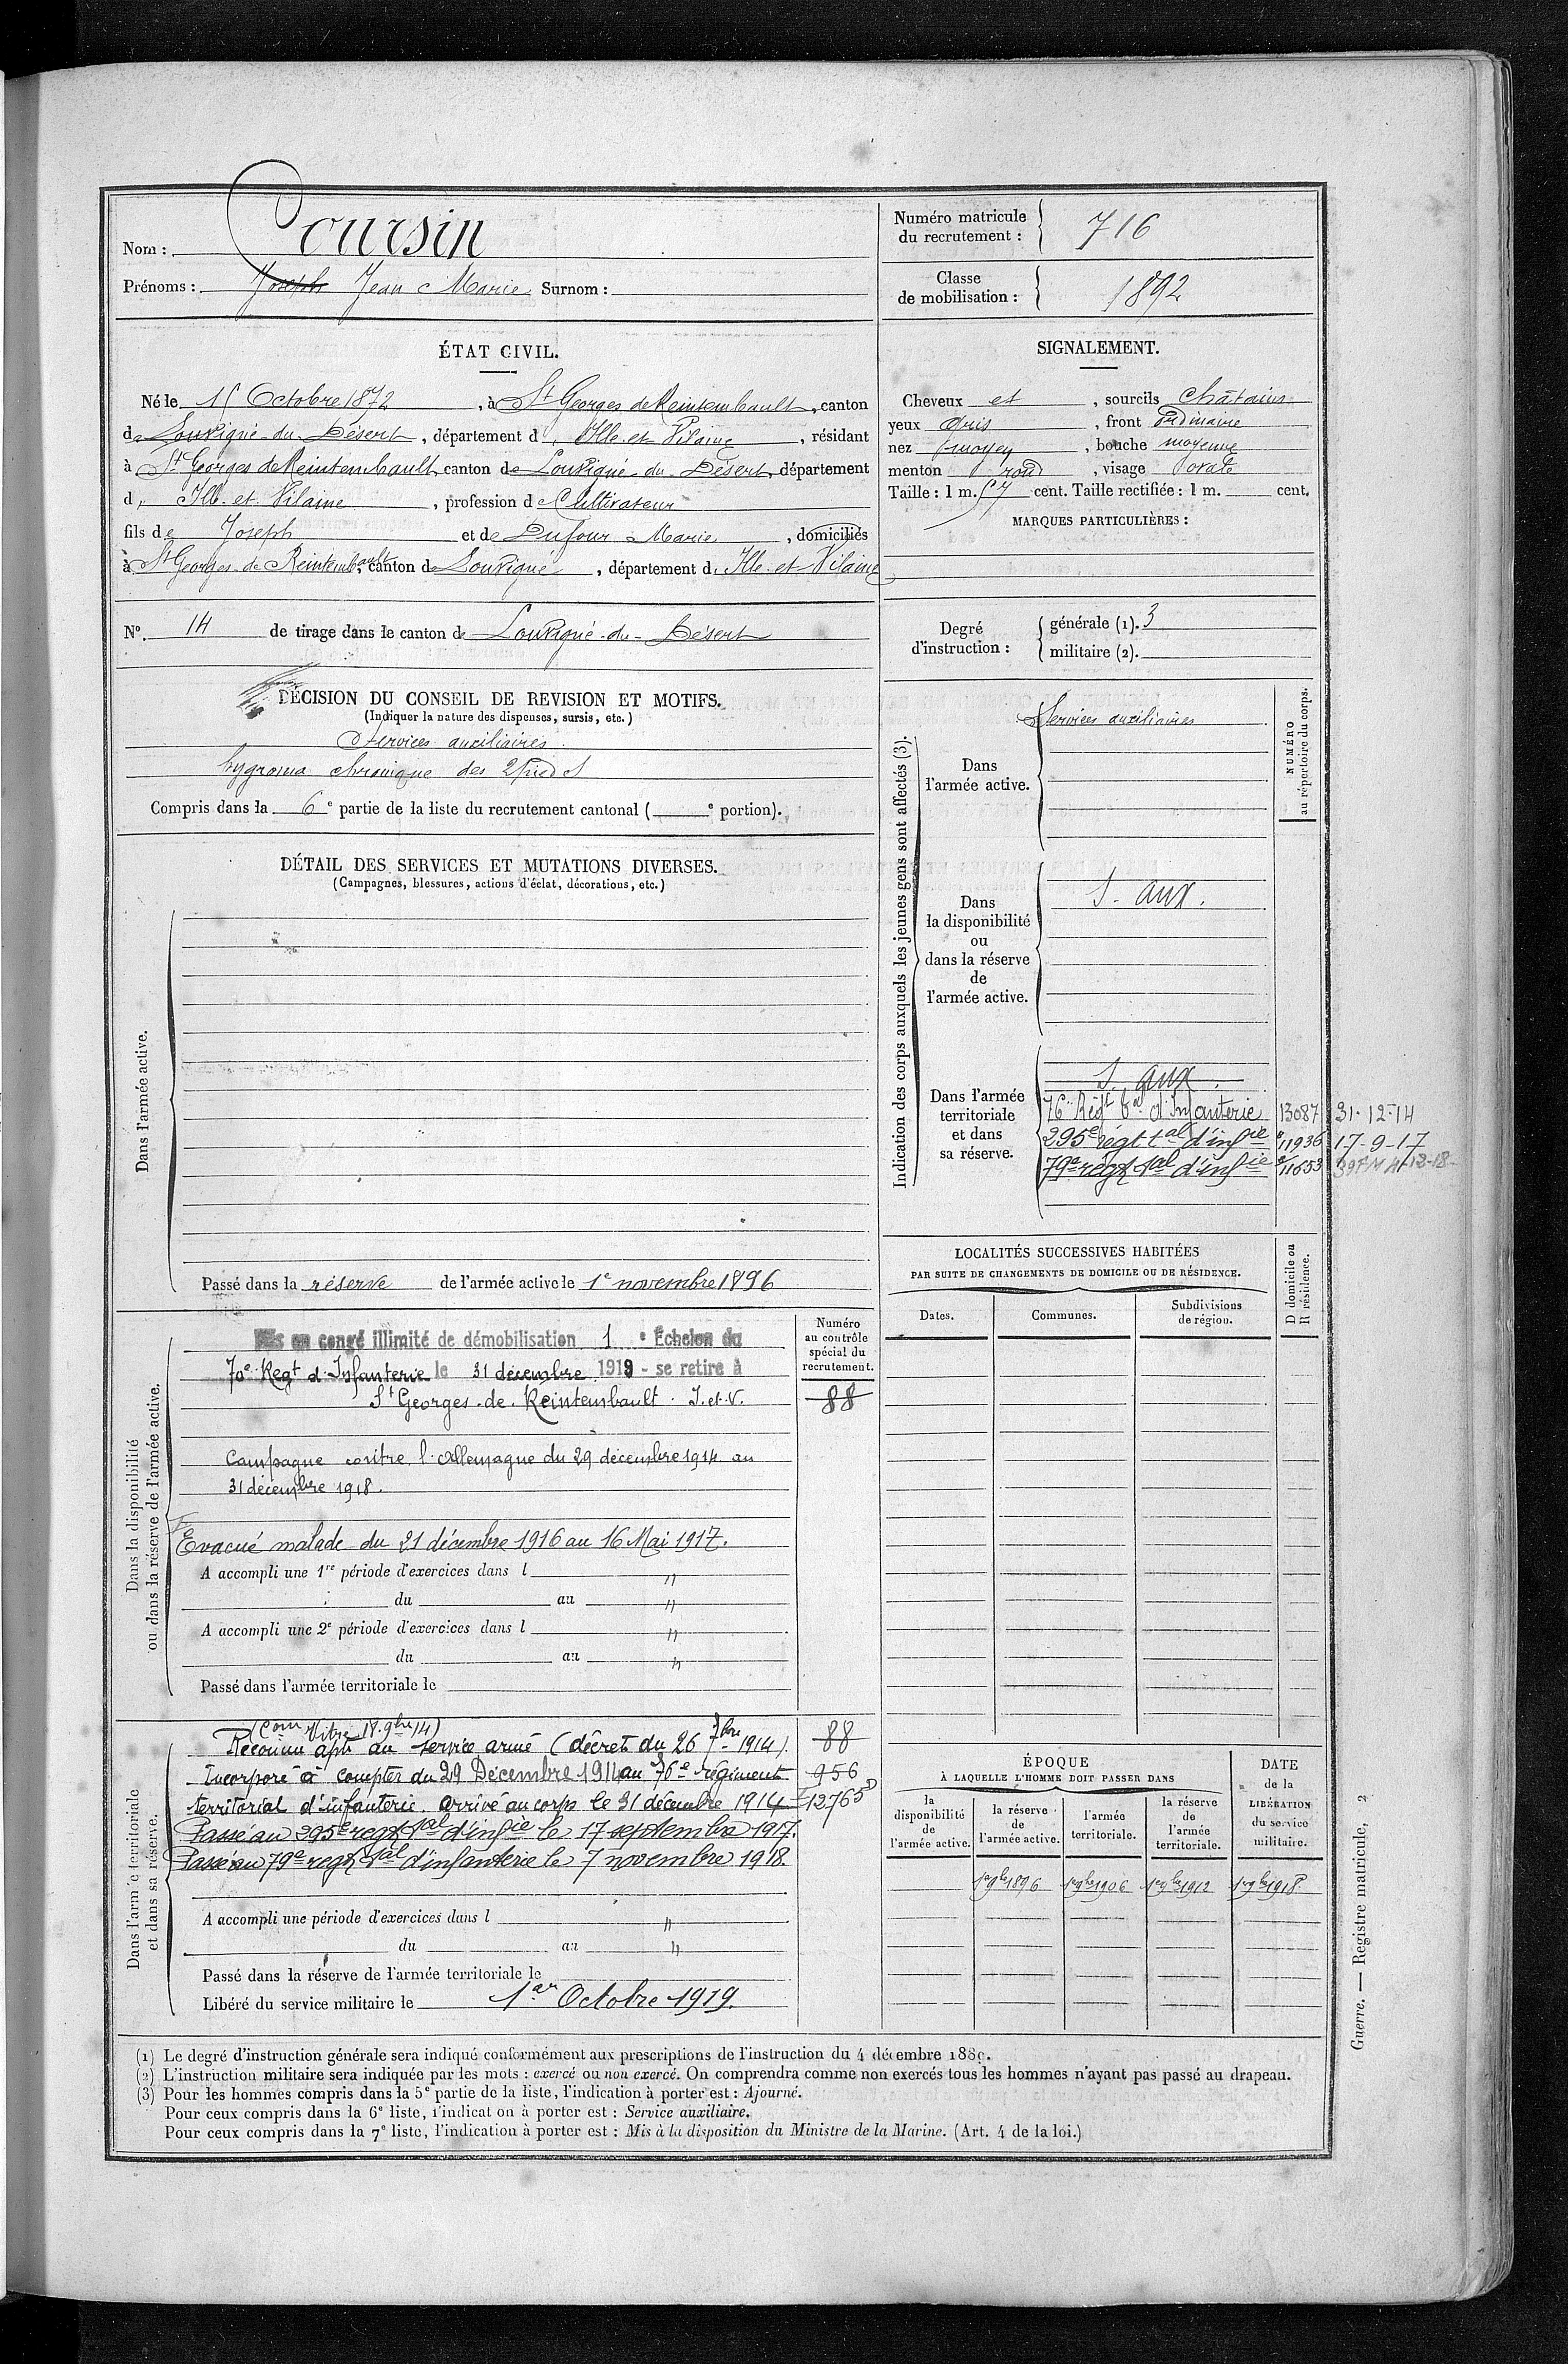 Nom : Coursin
Prénoms : Joseph Jean Marie Surnom :
Numéro matricule du recrutement : 716
Classe de mobilisation : 1892
ÉTAT CIVIL.
Né le 15 Octobre 1872, à St Georges de Reintembault, canton
de Louvigné-du-Désert, département d'Ille-et-Vilaine, résidant
à St Georges de Reintembault, canton de Louvigné-du-Désert, département
d'Ille-et-Vilaine, profession de Cultivateur
fils de Joseph et de Dufour Marie, domiciliés
à St Georges-de-Reintembault, canton de Louvigné, département d'Ille-et-Vilaine
N° 14 de tirage dans le canton de Louvigné-du-Désert
SIGNALEMENT.
Cheveux et, sourcils châtains
yeux gris, front ordinaire
nez moyen, bouche moyenne
menton rond, visage ovale
Taille : 1 m. 57 cent. Taille rectifiée : 1 m. cent.
MARQUES PARTICULIÈRES :
Degré d'instruction : générale (1). 3
militaire (2).
DÉCISION DU CONSEIL DE REVISION ET MOTIFS.
(Indiquer la nature des dispenses, sursis, etc.)
Services auxiliaires
hygroma chronique des 2 pieds
Compris dans la 6e partie de la liste du recrutement cantonal ( e portion).
DÉTAIL DES SERVICES ET MUTATIONS DIVERSES.
(Campagnes, blessures, actions d'éclat, décorations, etc.)
Dans l'armée active.
Passé dans la réserve de l'armée active le 1e novembre 1896
Indication des corps auxquels les jeunes gens sont affectés (3).
NUMÉRO au répertoire du corps.
Dans l'armée active.
Services auxiliaires
Dans la disponibilité ou dans la réserve de l'armée active.
S. aux.
Dans l'armée territoriale et dans sa réserve.
S. aux.
76e Régt tal d'Infanterie 13087 31-12-14
295e régt tal d'infie 11936 17-9-17
79e régt tal d'infie 11653
LOCALITÉS SUCCESSIVES HABITÉES
PAR SUITE DE CHANGEMENTS DE DOMICILE OU DE RÉSIDENCE.
Dates.
Communes.
Subdivisions de région.
D domicile ou R résidence.
Dans la disponibilité ou dans la réserve de l'armée active.
Numéro au contrôle spécial du recrutement.
88
Mis en congé illimité de démobilisation 1 e Échelon du
70e Regt d'Infanterie le 31 décembre 1919 - se retire à
St Georges-de-Reintembault. I.et.V.
Campagne contre l'Allemagne du 29 décembre 1914 au
31 décembre 1918.
Evacué malade du 21 décembre 1916 au 16 Mai 1917.
A accompli une 1re période d'exercices dans l "
du au "
A accompli une 2e période d'exercices dans l "
du au "
Passé dans l'armée territoriale le
Dans l'armée territoriale et dans sa réserve.
(Com Vitré 18. 9bre 14)
Reconnu apte au service armé (décret du 26 7bre 1914). 88
Incorporé à compter du 29 Décembre 1914 au 76e régiment 956
territorial d'infanterie. arrivé au corps le 31 décembre 1914 12765
Passé au 295e regt tal d'infie le 17 septembre 1917.
Passé au 79e regt tal d'infanterie le 7 novembre 1918.
A accompli une période d'exercices dans l "
du au "
Passé dans la réserve de l'armée territoriale le
Libéré du service militaire le 1er Octobre 1919.
ÉPOQUE
À LAQUELLE L'HOMME DOIT PASSER DANS
la disponibilité de l'armée active.
la réserve de l'armée active.
l'armée territoriale.
la réserve de l'armée territoriale.
DATE de la LIBÉRATION du service militaire.
1er 9bre 1896 1er 9bre 1906 1er 9bre 1912 1er 9bre 1918
(1) Le degré d'instruction générale sera indiqué conformément aux prescriptions de l'instruction du 4 décembre 1889.
(2) L'instruction militaire sera indiquée par les mots : exercé ou non exercé. On comprendra comme non exercés tous les hommes n'ayant pas passé au drapeau.
(3) Pour les hommes compris dans la 5e partie de la liste, l'indication à porter est : Ajourné.
Pour ceux compris dans la 6e liste, l'indication à porter est : Service auxiliaire.
Pour ceux compris dans la 7e liste, l'indication à porter est : Mis à la disposition du Ministre de la Marine. (Art. 4 de la loi.)
Guerre. — Registre matricule, 2